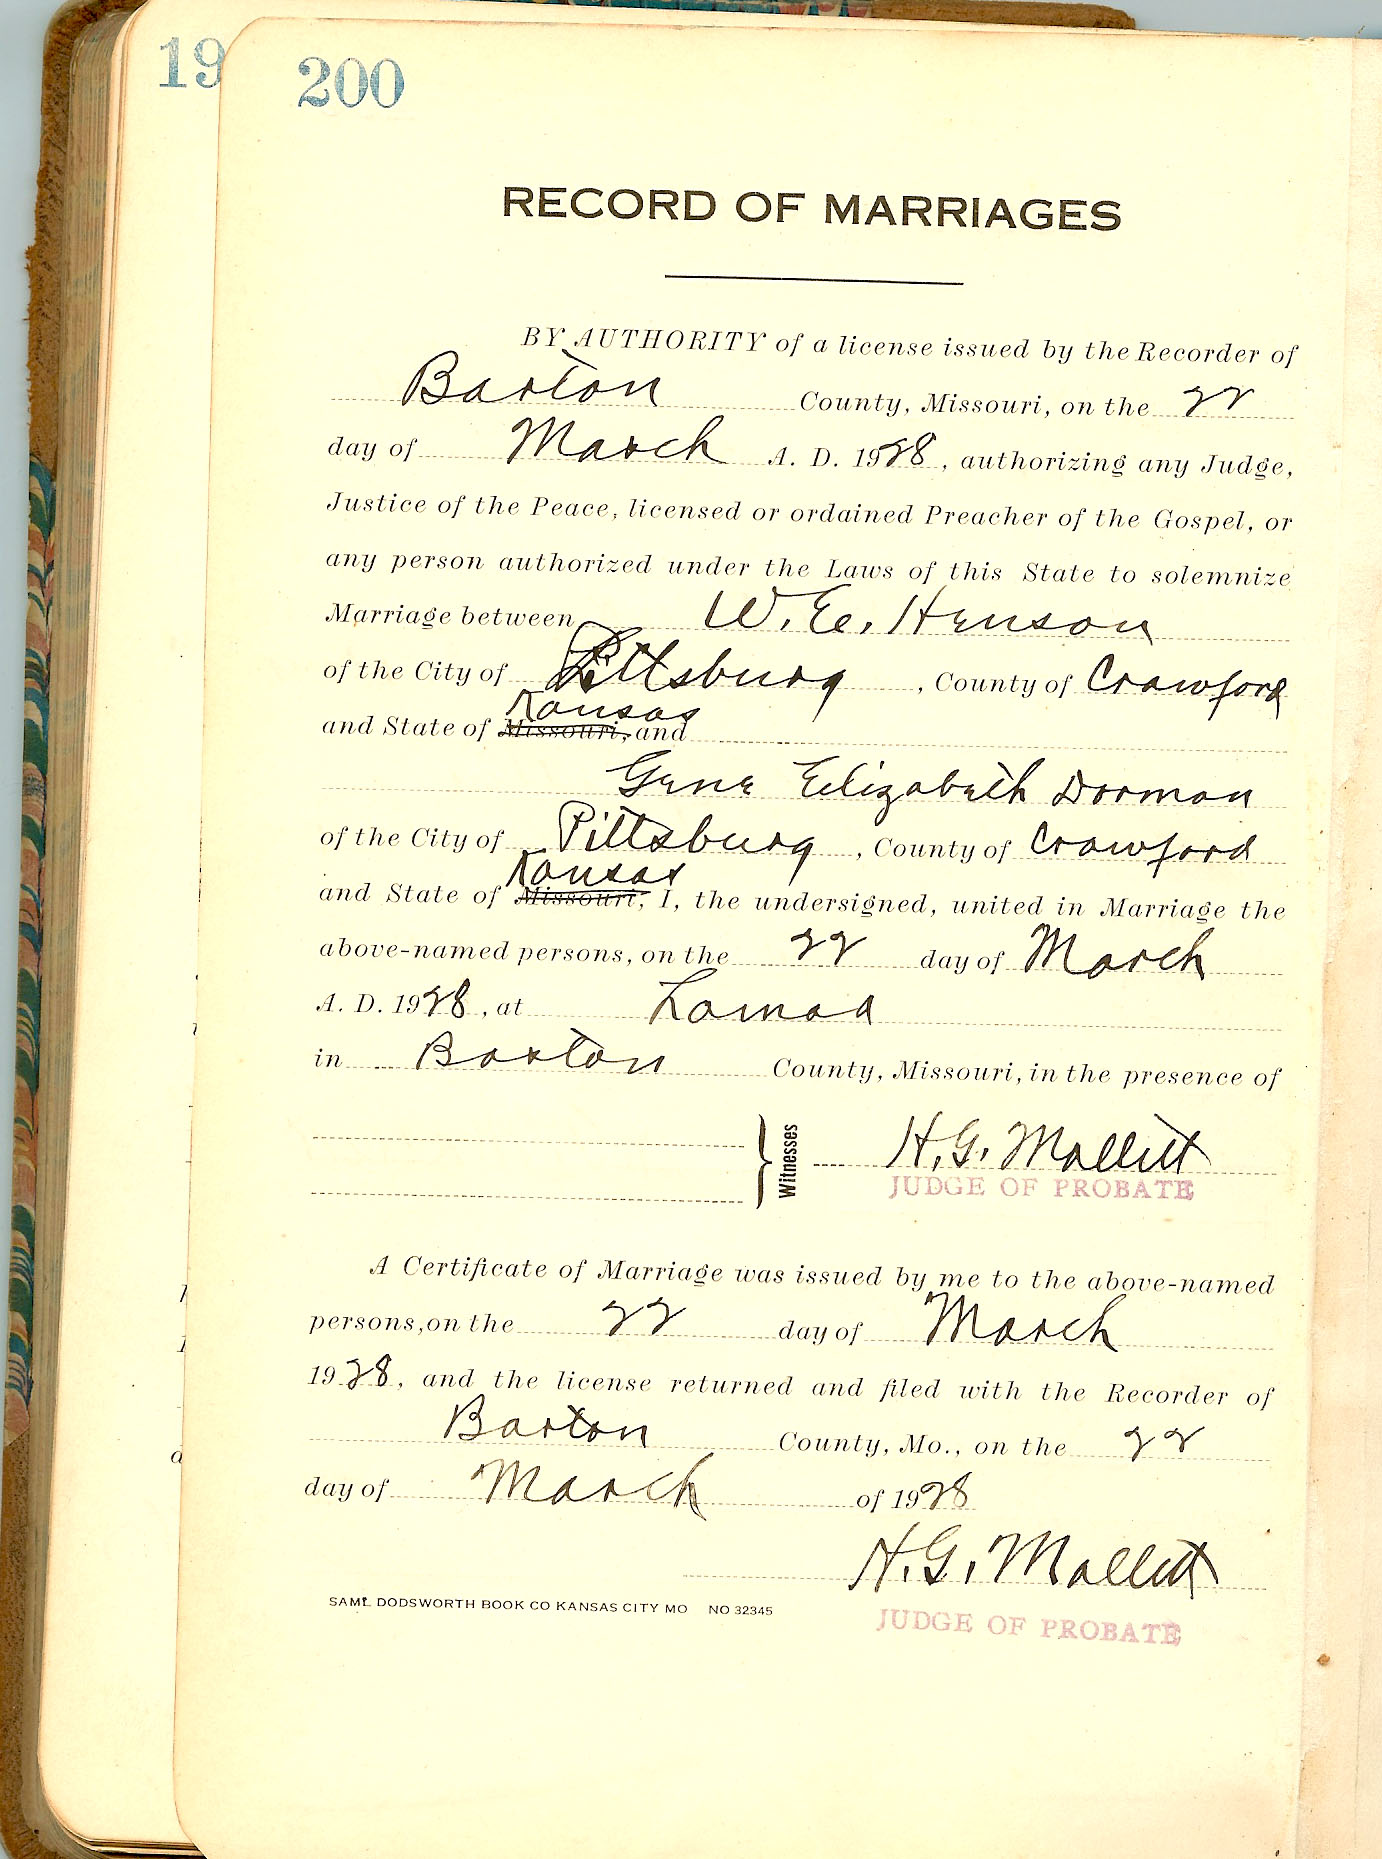 19
200
RECORD OF MARRIAGES
BY AUTHORITY of a license issued by the Recorder of
Barton County, Missouri, on the 22
day of March A. D. 1928, authorizing any Judge,
Justice of the Peace, licensed or ordained Preacher of the Gospel, or
any person authorized under the Laws of this State to solemnize
Marriage between W. E. Henson
of the City of Pittsburg, County of Crawford
Kansas
and State of Missouri, and
Gene Elizabeth Dorman
of the City of Pittsburg, County of Crawford
Kansas
and State of Missouri, I, the undersigned, united in Marriage the
above-named persons, on the 22 day of March
A. D. 1928, at Lamar
in Barton County, Missouri, in the presence of
Witnesses
H. G. Mallett
JUDGE OF PROBATE
A Certificate of Marriage was issued by me to the above-named
persons, on the 22 day of March
1928, and the license returned and filed with the Recorder of
Barton County, Mo., on the 22
day of March of 1928
H. G. Mallett
SAML DODSWORTH BOOK CO KANSAS CITY MO NO 32345
JUDGE OF PROBATE